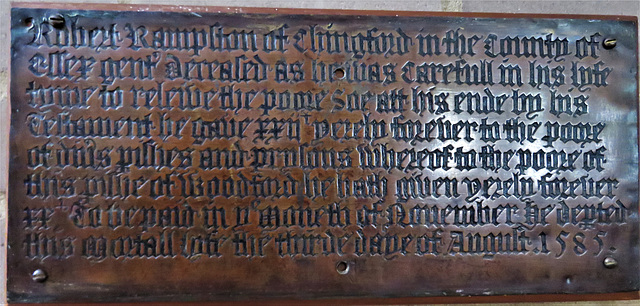 Robert Rampston of Chingford in the County of
Essex gent deceased as he was Carefull in his lyfe
tyme to releive the poore Soe att his ende by his
Testament he gave xxiiˡ yerely forever to the poore
of divs pishes and prisons Whereof to the poore of
this pishe of Woodford he hath given yerely forever
xxˢ To be paid in yᵉ moneth of November he depted
this mortall lyfe the thirde daye of August 1585.